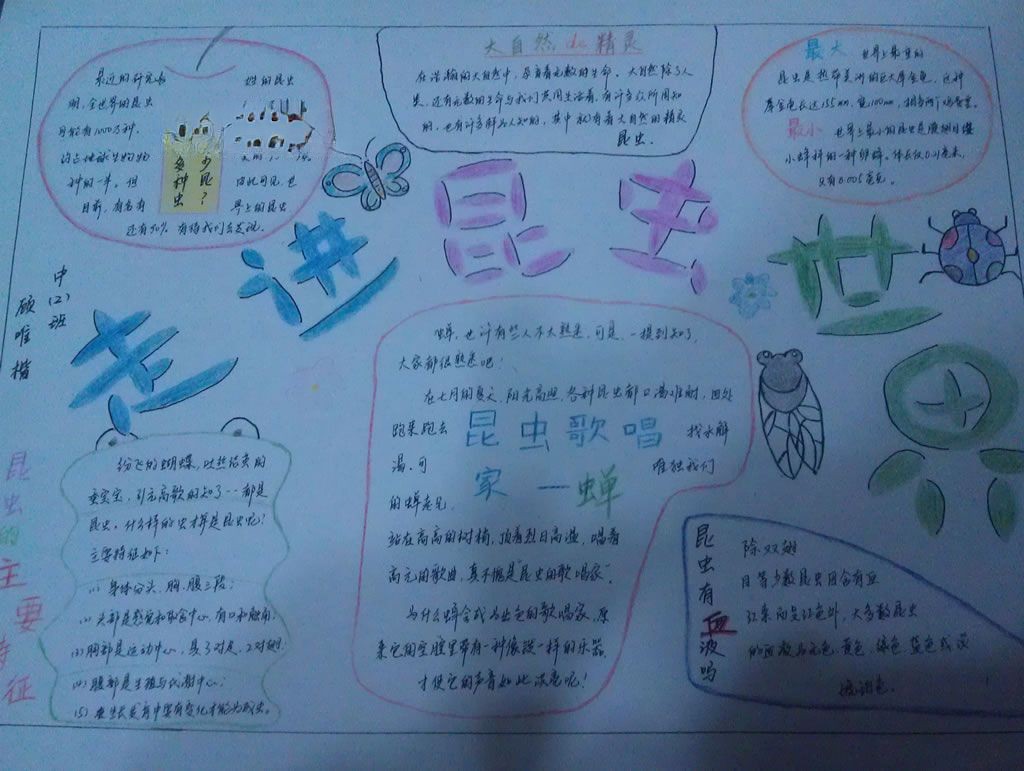 大自然de精灵
在浩瀚的大自然中，孕育着无数的生命。大自然除了人
类，还有无数的生命与我们共同生活着，有许多众所周知
的，也有许多鲜为人知的，其中就有着大自然的精灵
昆虫。
最近的研究表
明，全世界的昆虫
可能有1000万种，
约占地球生物物
种的一半。但
目前，有名有
姓的昆虫
多少种昆虫？
由此可见，世
界上的昆虫
还有90%有待我们去发现。
最大 世界上最重的
昆虫是热带美洲的巨大犀金龟，这种
犀金龟长达155mm，宽100mm，
最小 世界上最小的昆虫是膜翅目缨
小蜂科的一种卵蜂，体长仅0.21毫米，
只有0.005毫克。
走进昆虫世界
中(2)班
顾唯楷
昆虫的主要特征
纷飞的蝴蝶，吐丝结茧的
蚕宝宝，引亢高歌的知了……都是
昆虫。什么样的虫才算是昆虫呢？
主要特征如下：
(1)身体分头、胸、腹三段；
(2)头部是感觉和取食中心，有口和触角；
(3)胸部是运动中心，具3对足，2对翅；
(4)腹部是生殖与代谢中心；
(5)
蝉，也许有些人不太熟悉，可是，一提到知了，
大家都很熟悉吧！
在七月的夏天，阳光高照，各种昆虫都口渴难耐，四处
跑来跑去 找水解
渴，可 唯独我们
的蝉老兄，
昆虫歌唱
家—蝉
站在高高的树梢，顶着烈日高温，唱着
高亢的歌曲，真不愧是“昆虫的歌唱家”。
为什么蝉会成为出色的歌唱家，原
来它的空腔里带有一种像鼓一样的乐器，
才使它的声音如此洪亮呢！
昆虫有血液吗
除双翅
目等少数昆虫因含有血
红素而呈红色外，大多数昆虫
的血液为无色、黄色、绿色、蓝色或淡